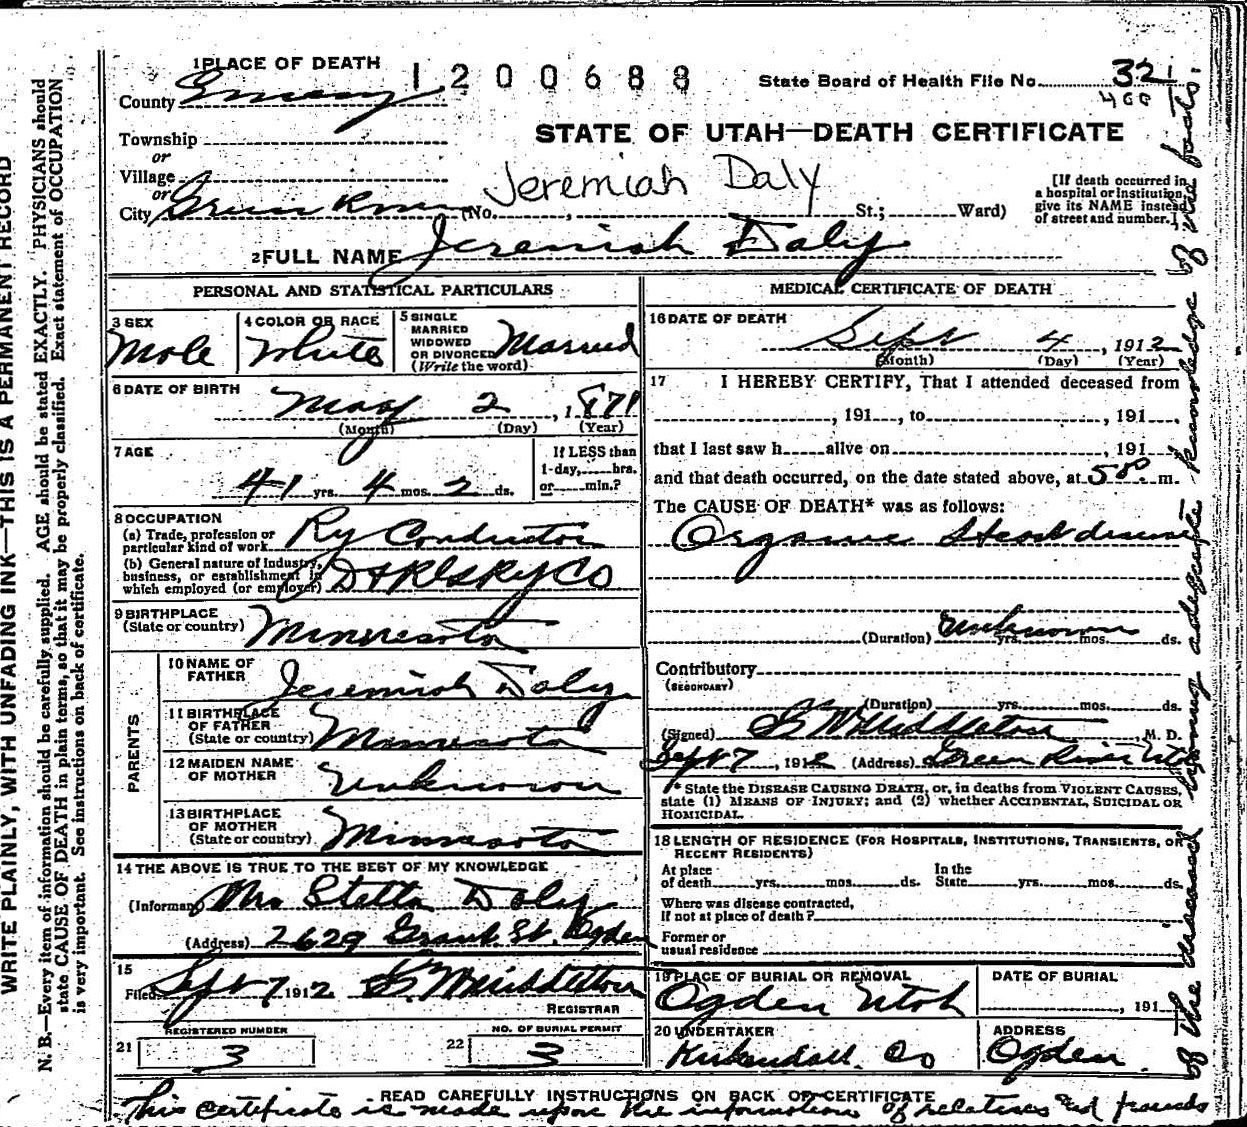 1 PLACE OF DEATH
1200688
State Board of Health File No. 32
County Emery
400
Township
STATE OF UTAH—DEATH CERTIFICATE
or
Village
Jeremiah Daly
or
City Green River (No. , St.; Ward)
[If death occurred in a hospital or institution, give its NAME instead of street and number.]
2 FULL NAME Jeremiah Daly
PERSONAL AND STATISTICAL PARTICULARS
3 SEX Male
4 COLOR OR RACE White
5 SINGLE MARRIED WIDOWED OR DIVORCED (Write the word) Married
6 DATE OF BIRTH May 2, 1871
(Month) (Day) (Year)
7 AGE
41 yrs. 4 mos. 2 ds.
If LESS than 1-day, hrs. or min.?
8 OCCUPATION
(a) Trade, profession or particular kind of work Ry Conductor
(b) General nature of Industry, business, or establishment in which employed (or employer) D & R G Ry Co
9 BIRTHPLACE (State or country) Minnesota
PARENTS
10 NAME OF FATHER Jeremiah Daly
11 BIRTHPLACE OF FATHER (State or country) Minnesota
12 MAIDEN NAME OF MOTHER Unknown
13 BIRTHPLACE OF MOTHER (State or country) Minnesota
14 THE ABOVE IS TRUE TO THE BEST OF MY KNOWLEDGE
(Informant) Mrs Stella Daly
(Address) 2629 Grant. St. Ogden
15
Filed Sept 7 1912 G W Middleton
REGISTRAR
REGISTERED NUMBER
21 3
NO. OF BURIAL PERMIT
22 3
MEDICAL CERTIFICATE OF DEATH
16 DATE OF DEATH
Sept 4, 1912
(Month) (Day) (Year)
17 I HEREBY CERTIFY, That I attended deceased from
, 191 , to , 191
that I last saw h alive on , 191
and that death occurred, on the date stated above, at 5 00 m.
The CAUSE OF DEATH* was as follows:
Organic Heart disease
(Duration) Unknown yrs. mos. ds.
Contributory
(SECONDARY)
(Duration) yrs. mos. ds.
(Signed) G W Middleton M. D.
Sept 7, 1912 (Address) Green River Utah
* State the DISEASE CAUSING DEATH, or, in deaths from VIOLENT CAUSES, state (1) MEANS OF INJURY; and (2) whether ACCIDENTAL, SUICIDAL OR HOMICIDAL.
18 LENGTH OF RESIDENCE (FOR HOSPITALS, INSTITUTIONS, TRANSIENTS, OR RECENT RESIDENTS)
At place of death yrs. mos. ds. In the State yrs. mos. ds.
Where was disease contracted, if not at place of death?
Former or usual residence
19 PLACE OF BURIAL OR REMOVAL
Ogden Utah
DATE OF BURIAL
, 191
20 UNDERTAKER
Kirkendall Co
ADDRESS
Ogden
READ CAREFULLY INSTRUCTIONS ON BACK OF CERTIFICATE
This certificate is made upon the information of relatives and friends
of the deceased having adequate knowledge of the facts.
WRITE PLAINLY, WITH UNFADING INK—THIS IS A PERMANENT RECORD
N. B.—Every item of information should be carefully supplied. AGE should be stated EXACTLY. PHYSICIANS should
state CAUSE OF DEATH in plain terms, so that it may be properly classified. Exact statement of OCCUPATION
is very important. See instructions on back of certificate.